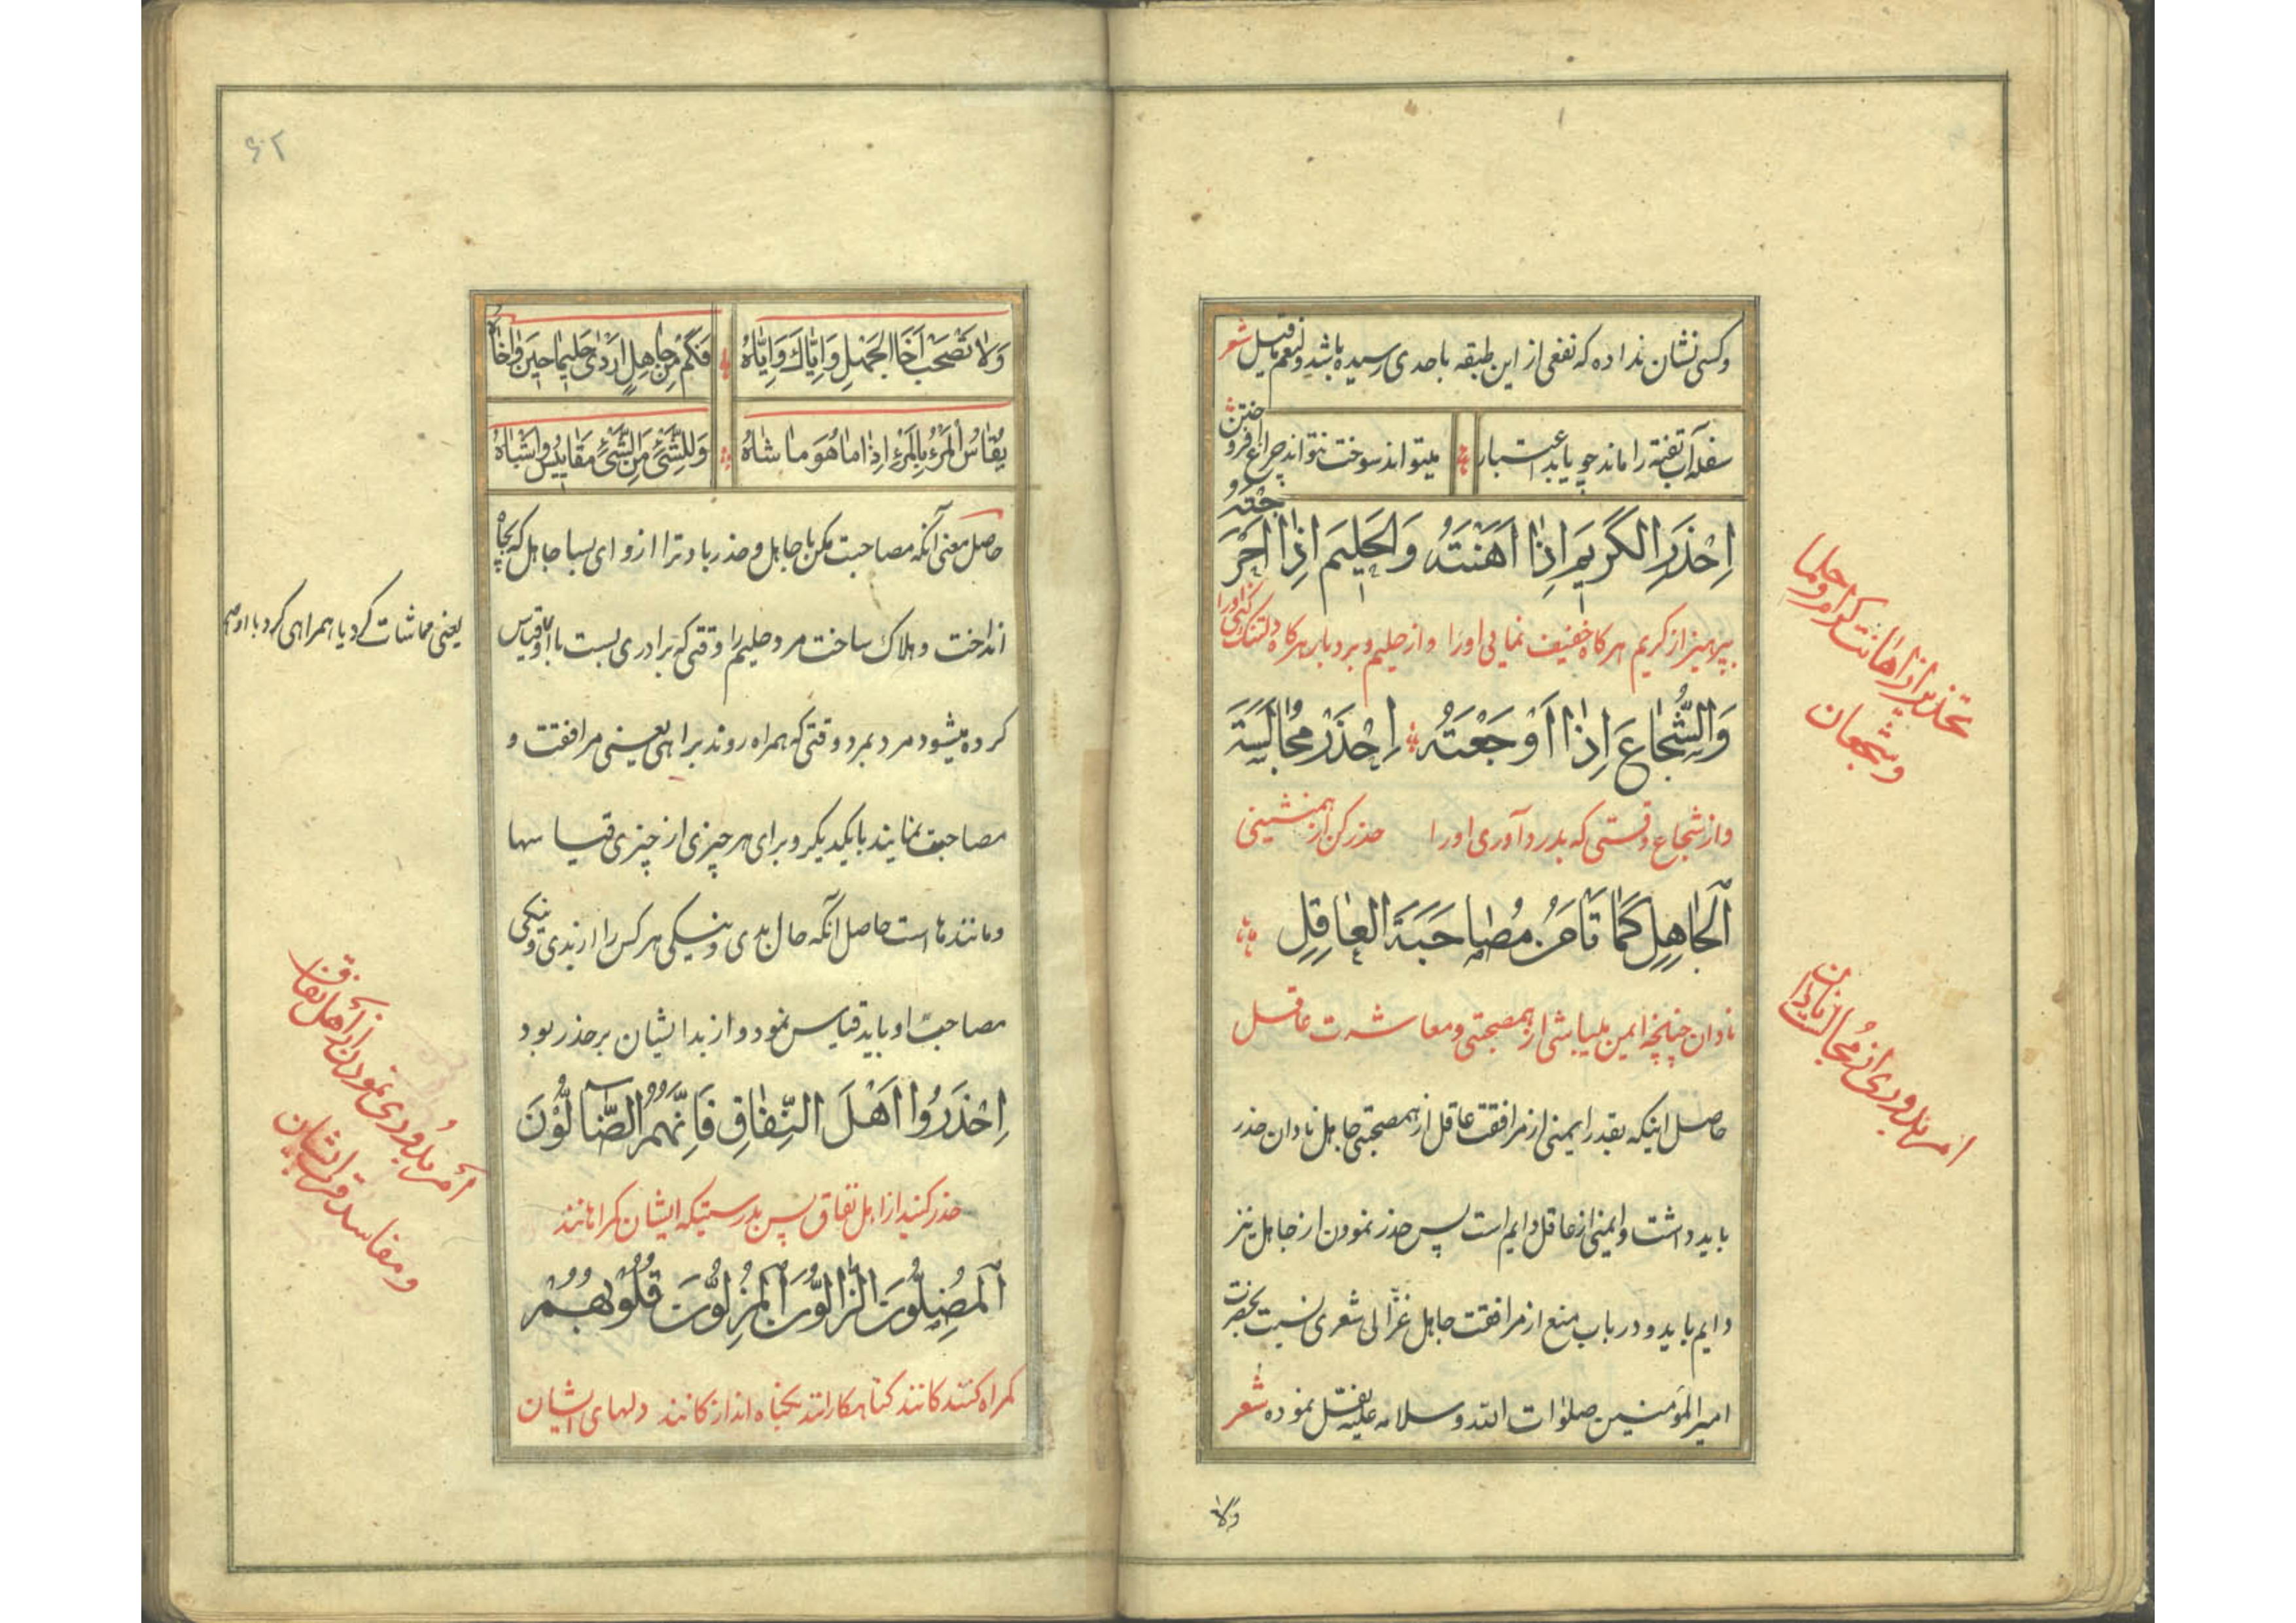 وکسی نشان نداده که نفعی از این طبقه باحدی رسیده باشد ولنعم ما قیل شعر
سفله آب تفته را ماند چو یابد اعتبار میتواند سوخت نتواند چراغ افروختن
اِحْذَرِ الكَرِيمَ اِذَا اَهَنْتَهُ وَالحَلِيمَ اِذَا اَحْرَجْتَهُ
بپرهیز از کریم هرگاه خفیف نمایی اورا و از حلیم و بردبار هرگاه دلتنک کنی اورا
وَالشُّجَاعَ اِذَا اَوْجَعْتَهُ اِحْذَرْ مُجَالَسَةَ
واز شجاع وقتی که بدرد آوری اورا حذر کن از همنشینی
الجَاهِلِ كَمَا تَامَنُ مُصَاحَبَةَ العَاقِلِ
نادان چنانچه ایمن میباشی از همصحبتی و معاشرت عاقل
حاصل اینکه بقدر ایمنی از مرافقت عاقل از همصحبتی جاهل نادان حذر
باید داشت و ایمنی از عاقل دایم است پس حذر نمودن از جاهل نیز
دایم باید و در باب منع از مرافقت جاهل غزالی شعری نسبت بحضرت
امیر المؤمنین صلوات الله وسلامه علیه نقل نموده شعر
ولا
تحذیر از اهانت کرام و حلما
و شجعان
امر بدوری از مجالست نادان
۶۰۲
وَلا تَصْحَبْ اَخَا الجَهْلِ وَاِيَّاكَ وَاِيَّاهُ فَكَمْ مِنْ جَاهِلٍ اَرْدَى حَلِيمًا حِينَ وَاخَاهُ
يُقَاسُ المَرْءُ بِالمَرْءِ اِذَا مَا هُوَ مَا شَاهُ وَلِلشَّيْءِ مِنَ الشَّيْءِ مَقَايِيسُ وَاَشْبَاهُ
حاصل معنی آنکه مصاحبت مکن با جاهل و حذر باد ترا ازو ای بسا جاهل که بچاه
انداخت و هلاک ساخت مرد حلیم را وقتی که برادری بست با او قیاس
کرده میشود مرد بمرد وقتی که همراه روند براهی یعنی مرافقت و
مصاحبت نمایند با یکدیگر و برای هر چیزی از چیزی قیاسها
ومانندها است حاصل آنکه حال بدی و نیکی هر کس را از بدی و نیکی
مصاحب او باید قیاس نمود و از بدا ایشان برحذر بود
اِحْذَرُوا اَهْلَ النِّفَاقِ فَاِنَّهُمُ الضَّالُّوْنَ
حذر کنید از اهل نفاق پس بدرستیکه ایشان گمراهانند
المُضِلُّونَ الزَّالُّونَ المُزِلُّونَ قُلُوبُهُمْ
گمراه کنندکانند گناهکارانند بگناه اندازکانند دلهای ایشان
یعنی مماشات کرد یا همراهی کرد با او
أمر بدوری نمودن از أهل نفاق
و مفاسد قرب ایشان